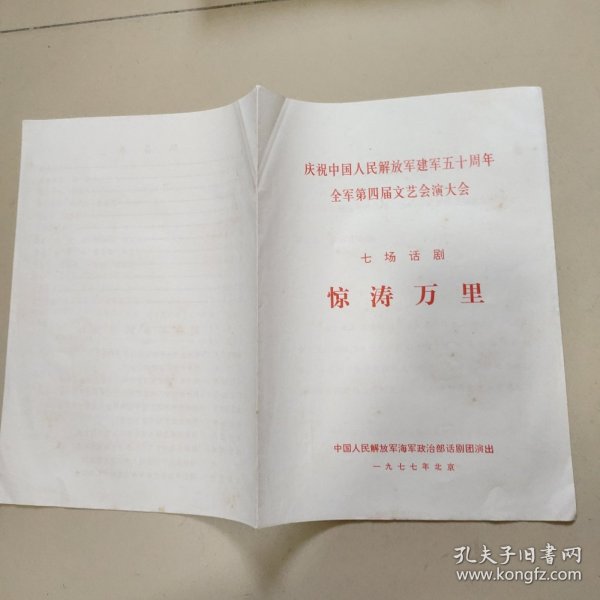 庆祝中国人民解放军建军五十周年
全军第四届文艺会演大会
七场话剧
惊涛万里
中国人民解放军海军政治部话剧团演出
一九七七年北京
孔夫子旧书网
www.kongfz.com